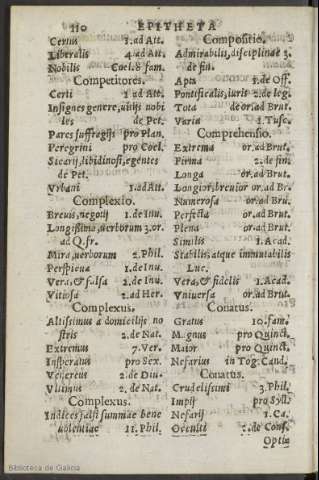 110 EPITHETA
Certus 1.ad Att.
Liberalis 4.ad Att.
Nobilis Coel.8.fam.
Competitores.
Certi 1.ad Att.
Insignes genere, nobi
les de Pet.
Pares suffragijs pro Plan.
Peregrini pro Coel.
Sicarij, libidinosi, egentes
de Pet.
Vrbani 1.ad Att.
Complexio.
Breuis, negotij 1.de Inu.
Longissima, verborum 3.or.
ad Q.fr.
Mira, verborum 2.Phil.
Perspicua 1.de Inu.
Vera, & falsa 1.de Inu.
Vitiosa 2.ad Her.
Complexus.
Altissimus a domicilijs no
stris 2.de Nat.
Extremus 7.Ver.
Insperatus pro Sex.
Venereus 2.de Diu.
Vltimus 2.de Nat.
Complexus.
Indices falsi summae bene
uolentiae 11.Phil.
Compositio.
Admirabilis, disciplinae 3.
de fin.
Apta 1.de Off.
Pontificalis, iuris 2.de leg.
Tota de or.ad Brut.
Varia 1.Tusc.
Comprehensio.
Extrema or.ad Brut.
Firma 2.de fin.
Longa or.ad Brut.
Longior, breuior or.ad Br.
Numerosa or.ad Bru.
Perfecta or.ad Brut.
Plena or.ad Brut.
Similis 1.Acad.
Stabilis, atque immutabilis
Luc.
Vera, & fidelis 1.Acad.
Vniuersa or.ad Brut.
Conatus.
Gratus 10.fam.
Magnus pro Quinct.
Maior pro Quinct.
Nefarius in Tog.Cand.
Conatus.
Crudelissimi 3.Phil.
Impij pro Syll.
Nefarij 1.Ca.
Occulti 2.de Conf.
Optim
Biblioteca de Galicia